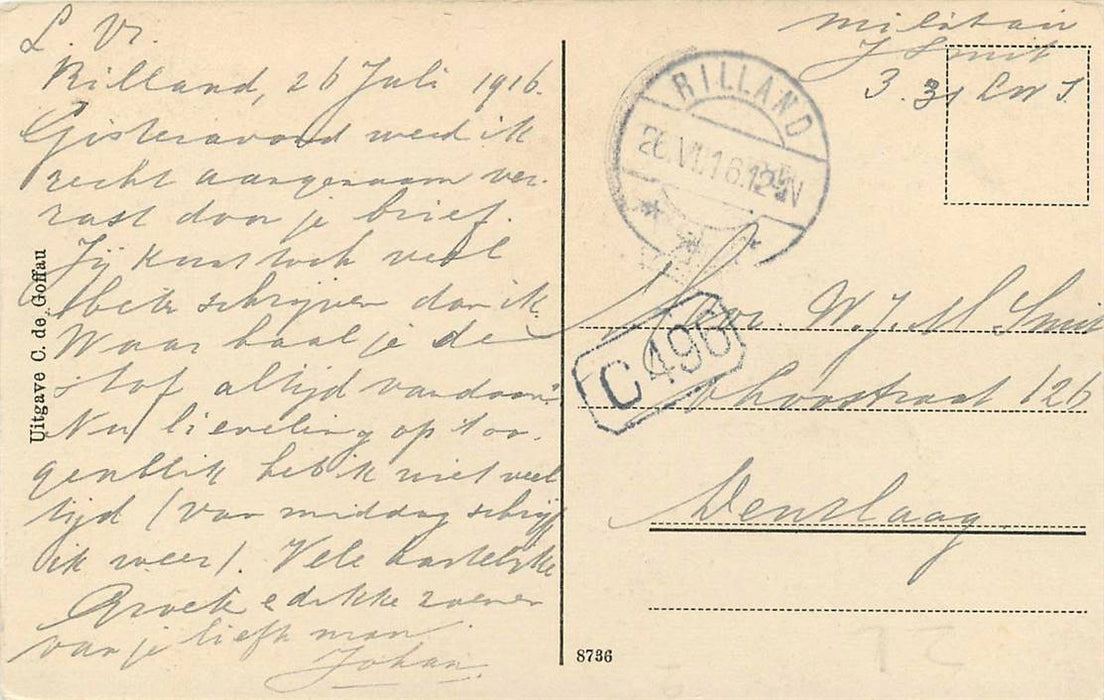 L. Vr.
Rilland, 26 Juli 1916.
Gisteravond werd ik
recht aangenaam ver-
rast door je brief.
Jij kunt toch veel
beter schrijven dan ik.
Waar haal je de
stof altijd vandaan?
Nu lieveling op 't oo-
genblik heb ik niet veel
tijd (van middag schrijf
ik weer). Vele hartelijke
Groete e dikke zoenen
van je liefh man
Johan.
Uitgave C. de Goffau
8736
militair
J Smit
3. 31 LWI.
RILLAND
26.VII.16.12-1N
C 496
Mevr. W. J. M Smit
126
Den Haag